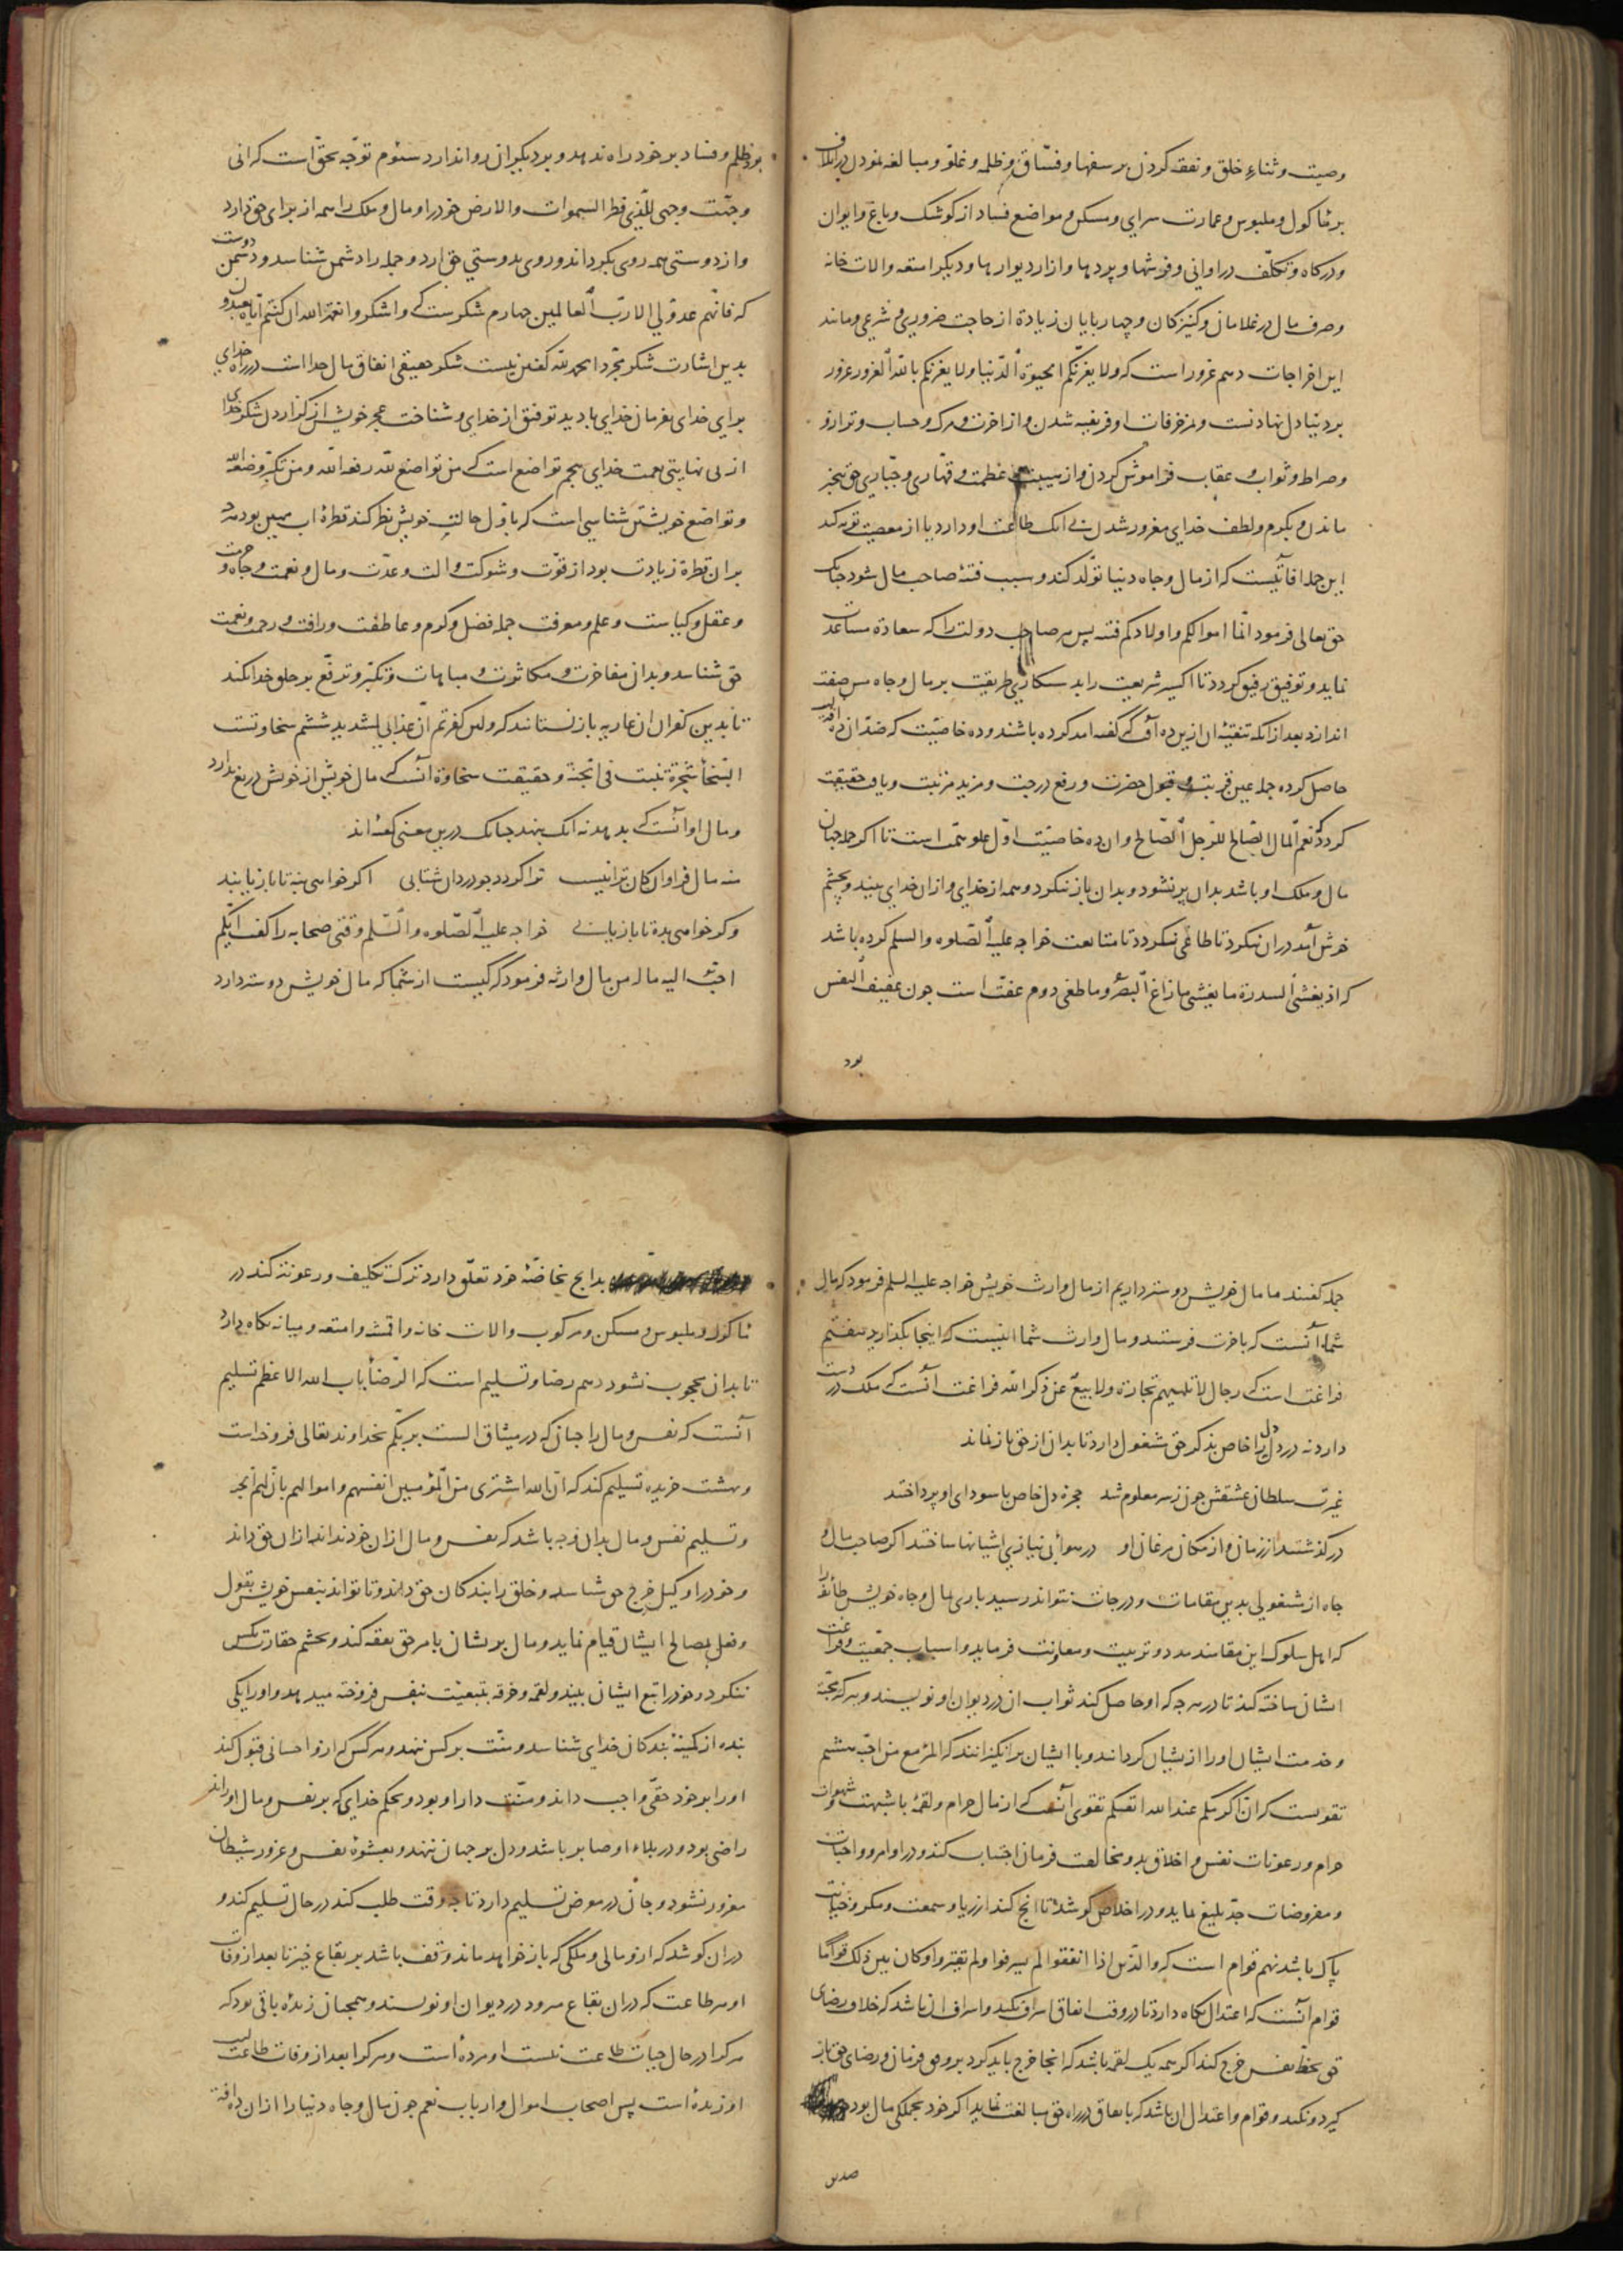 وصیت و ثناء خلق و نفقه کردن بر سفها و فسّاق و ظلمه و غلوّ و مبالغه نمودن در اتلاف
بر مأکول و ملبوس و عمارت سرای و مسکن و مواضع فساد از کوشک و باغ و ایوان
و درکاه و تکلّف در اوانی و فرشها و پردها و ازار دیوارها و دیکر امتعه و الات خانه
و صرف مال در غلامان و کنیزکان و چهاربایان زیادة از حاجت ضروری و شرعی و مانند
این اخراجات دهم غرور است که و لا یغرّنّکم الحیوة الدّنیا و لا یغرنّکم بالله الغرور غرور
بر دنیا دل نهادنست و بمزخرفات او فریفته شدن و از اخرت و مرک و حساب و ترازو
و صراط و ثواب و عقاب فراموش کردن و از هیبت عظمت و قهّاری و جبّاری حق بیخبر
ماندن و بکرم و لطف خدای مغرور شدن بی انک طاعت او دارد یا از معصیت توبه کند
این جمله افاتیست که از مال و جاه دنیا تولّد کند و سبب فتنهٔ صاحب مال شود جنانک
حق تعالی فرمود انّما اموالکم و اولادکم فتنه پس هر صاحب دولت را که سعادة مساعدت
نماید و توفیق رفیق کردد تا اکسیر شریعت را بدستکاری طریقت بر مال و جاه مس صفت
اندازد بعد از انکه تنقیهٔ ان ازین ده آفت که کفته امد کرده باشند و ده خاصیّت که ضدّ ان ده آفتست
حاصل کرده جمله عین قربت و قبول حضرت و رفع درجت و مزید مرتبت و یافت حقیقت
کردد که نعم المال الصّالح للرّجل الصّالح و ان ده خاصیّت اوّل علو همّت است تا اکر جمله جهان
مال و ملک او باشد بدان پر نشود و بدان باز ننکرد و همه از خدای و ازان خدای بیند و بچشم
خوش آمد دران ننکرد تا طاغی نکردد تا متابعت خواجه علیه الصّلوه والسلم کرده باشد
که اذ یغشی السدرة ما یغشی ما زاغ البصر و ما طغی دوم عفّت است جون عفیف النفس
بود
بود ظلم و فساد بر خود راه ندهد و بر دیکران روا ندارد سئوم توّجه بحقّ است که انی
وجّهت وجهی للّذی فطر السموات والارض خود را و مال و ملک را همه از برای حق دارد
و از دوستی همه روی بکرداند و روی بدوستی حق ارد و جمله را دشمن شناسد و دوست دشمن
که فانّهم عدوّ لی الا ربّ العالمین جهارم شکرست که واشکروا نعمة الله ان کنتم ایّاه تعبدون
بدین اشارت شکر مجرّد الحمد لله کفتن نیست شکر حقیقی انفاق مال خدا است در راه خدای
برای خدای بفرمان خدای با دید توفیق از خدای و شناخت عجز خویش از کزاردن شکر خدای
از بی نهایتی نعمت خدای بنجم تواضع است که من تواضع لله رفعه الله و من تکبّر وضعه الله
و تواضع خویشتن شناسی است که با اوّل حالت خویش نظر کند قطرهٔ اب مهین بود هرچ
بران قطره زیادت بود از قوّت و شوکت و الت و عدّت و مال و نعمت و جاه و حرمت
و عقل و کیاست و علم و معرفت جمله فضل و کرم و عاطفت و رافت و رحمت و نعمت
حق شناسد و بدان مفاخرت و مکاثرت و مباهات و تکبّر و ترفّع بر خلق خدا نکند
تا بدین کفران ان عاریه باز نستانند که و لئن کفرتم انّ عذابی لشدید ششم سخاوتست
السّخأ شجرة تنبت فی الجنّة و حقیقت سخاوة آنست که مال خویش از خویش دریغ ندارد
و مال او انست که بدهد نه انک بنهد جنانک درین معنی کفته اند
اکر خواهی بنه تا باز یابند
و کر خواهی بده تا باز یابی خواجه علیه الصّلوه والسّلم وقتی صحابه را کفت ایّکم
احبّ الیه ماله من مال وارثه فرمود که کیست از شما که مال خویش دوستر دارد
جمله کفتند ما مال خویش دوستر داریم از مال وارث خویش خواجه علیه السلم فرمود که مال
شما آنست که باخرت فرستید و مال وارث شما انیست که اینجا بکذارید هفتم
فراغت است که رجال لا تلهیهم تجارة و لا بیع عن ذکر الله فراغت آنست که ملک در دست
دارد نه در دل دل را خاص بذکر حق مشغول دارد تا بدان از حق باز نماند
غیرت سلطان عشقش جون زسر معلوم شد حجرهٔ دل خاص با سودای او پرداختند
درکذشتند از زمان و از مکان مرغان او در هوأ بی نیازی اشیانها ساختند اکر صاحب مال و
جاه از مشغولی بدین مقامات و درجات نتواند رسید باری بمال و جاه خویش طائفه را
که اهل سلوک این مقامند مدد و تربیت و معاونت فرماید و اسباب جمعیّت و فراغت
ایشان ساخته کند تا در هرجه که او حاصل کند ثواب ان در دیوان او نویسند و هرکه بمحبّت
و خدمت ایشان او را از یشان کردانند و با ایشان برانکیزانند که المرٔ مع من احبّ هشتم
تقویست که انّ اکرمکم عند الله اتقیکم تقوی آنست که از مال حرام و لقمهٔ باشبهت و شهوات
حرام و رعونات نفس و اخلاق بد و مخالفت فرمان اجتناب کند و در اوامر و واجبات
و مفروضات جدّ بلیغ نماید و در اخلاص کوشد تا انج کند از ریا و سمعت و مکر و خیانت
پاک باشد نهم قوام است که والّذین اذا انفقوا لم یسرفوا و لم یقتروا و کان بین ذلک قواما
قوام آنست که اعتدال نکاه دارد تا در وقت انفاق اسراف نکند و اسراف ان باشد که خلاف رضای
حق بحظّ نفس خرج کند اکر همه یک لقمه باشد که انجا خرج باید کرد بر وفق فرمان و رضای حق باز
کیرد و نکند و قوام و اعتدال ان باشد که بانفاق در راه حق مبالغت نماید اکر خود بجملکی مال بود
بدانج بخاصّهٔ خود تعلّق دارد ترک تکلیف و رعونت کند در
مأکول و ملبوس و مسکن و مرکوب و الات خانه و اقمشه و امتعه و میانه نکاه دارد
تا بدان محجوب نشود دهم رضا و تسلیم است که الرّضأ باب الله الاعظم تسلیم
آنست که نفس و مال را جنان که در میثاق الست بربّکم بخداوند تعالی فروخت است
و بهشت خریده تسلیم کند که انّ الله اشتری من المؤمنین انفسهم و اموالهم بانّ لهم الجنّة
و تسلیم نفس و مال بدان وجه باشد که نفس و مال از ان خود نداند از ان حق داند
و خود را وکیل خرج حق شناسد و خلق را بندکان حق داند و تا تواند بنفس خویش بقول
و فعل بمصالح ایشان قیام نماید و مال بریشان بامر حق نفقه کند و بچشم حقارت بکس
ننکرد و خود را تبع ایشان بیند و لقمه و خرقه بتبعیّت بنفس فروخته میدهد و او را یکی
بنده از کمینهٔ بندکان خدای شناسد و منّت بر کس ننهد و هر کس که ازو احسانی قبول کند
او را بر خود حقّی واجب داند و منّت دار او بود و بحکم خدای که بر نفس و مال او راند
راضی بود و در بلاء او صابر باشد و دل بر جهان ننهد و بعشوهٔ نفس و غرور شیطان
مغرور نشود و جان در معرض تسلیم دارد تا جه وقت طلب کند در حال تسلیم کند و
دران کوشد که ازو مالی و ملکی که باز خواهد ماند وقف باشد بر بقاع خیر تا بعد از وفات
او هر طاعت که دران بقاع میرود در دیوان او نویسند و همجنان زنده باقی بود که
هرکرا در حال حیات طاعت نیست او مرده است و هرکرا بعد از وفات طاعت
او زنده است پس اصحاب اموال و ارباب نعم جون مال و جاه دنیا را ازان ده آفت